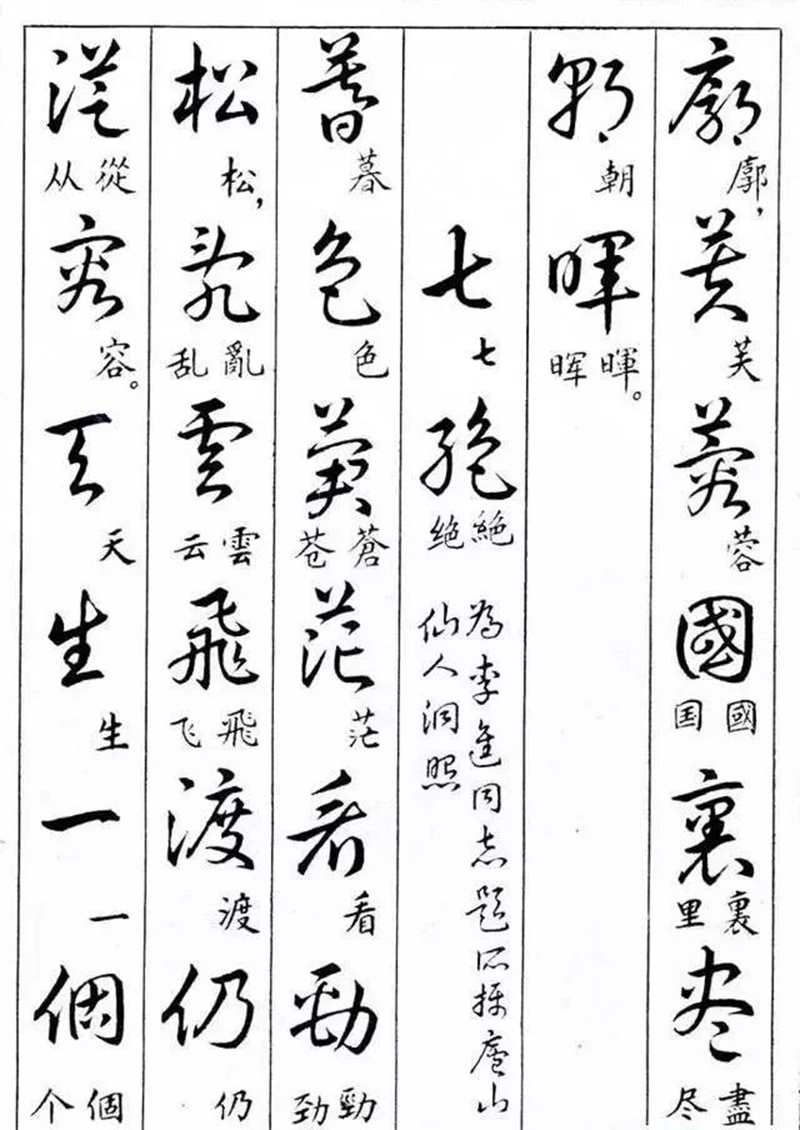 廓 廓， 芙 芙 蓉 蓉 國 國 国 裏 裏 里 盡 盡 尽
朝 朝 暉 暉 晖。
七 七 絶 絶 绝
為李進同志題所攝廬山
仙人洞照
暮 暮 色 色 蒼 蒼 苍 茫 茫 看 看 勁 勁 劲
松 松， 亂 亂 乱 雲 雲 云 飛 飛 飞 渡 渡 仍 仍
從 從 从 容 容。 天 天 生 生 一 一 個 個 个